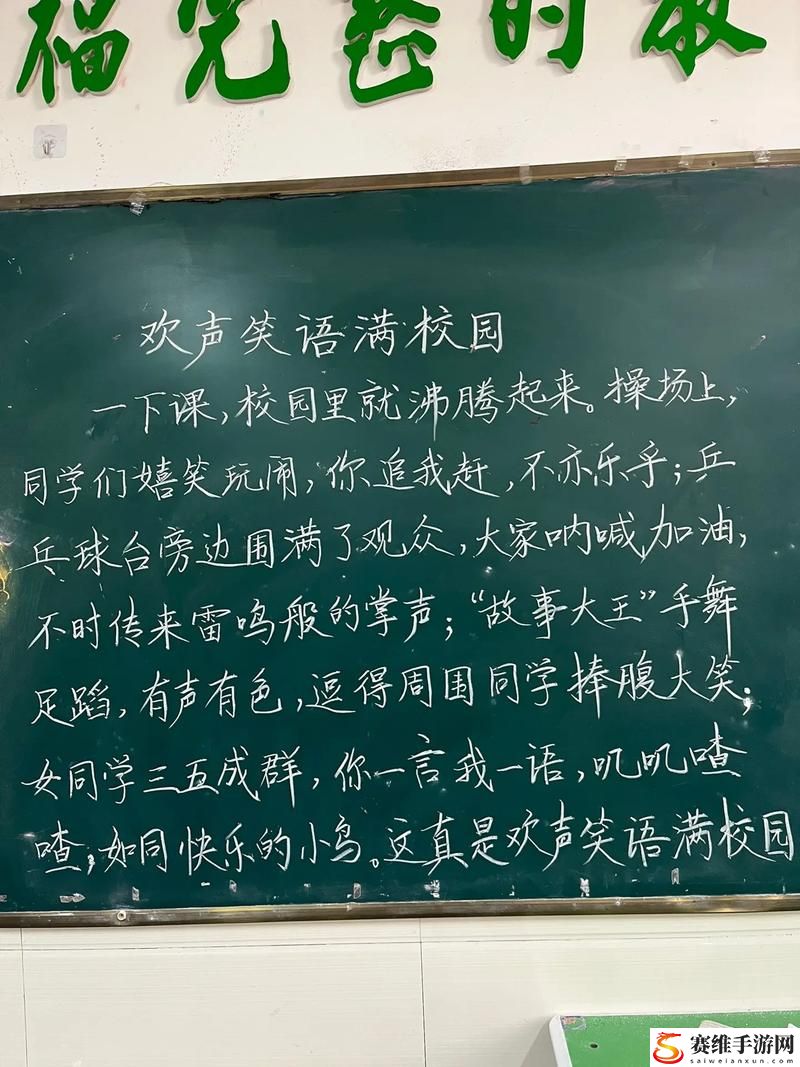 福
的
欢声笑语满校园
一下课,校园里就沸腾起来。操场上,
同学们嬉笑玩闹,你追我赶,不亦乐乎;乒
乓球台旁边围满了观众,大家呐喊加油,
不时传来雷鸣般的掌声;“故事大王”手舞
足蹈,有声有色,逗得周围同学捧腹大笑;
女同学三五成群,你一言我一语,叽叽喳
喳,如同快乐的小鸟。这真是欢声笑语满校园
赛维手游网
saiweianxun.com